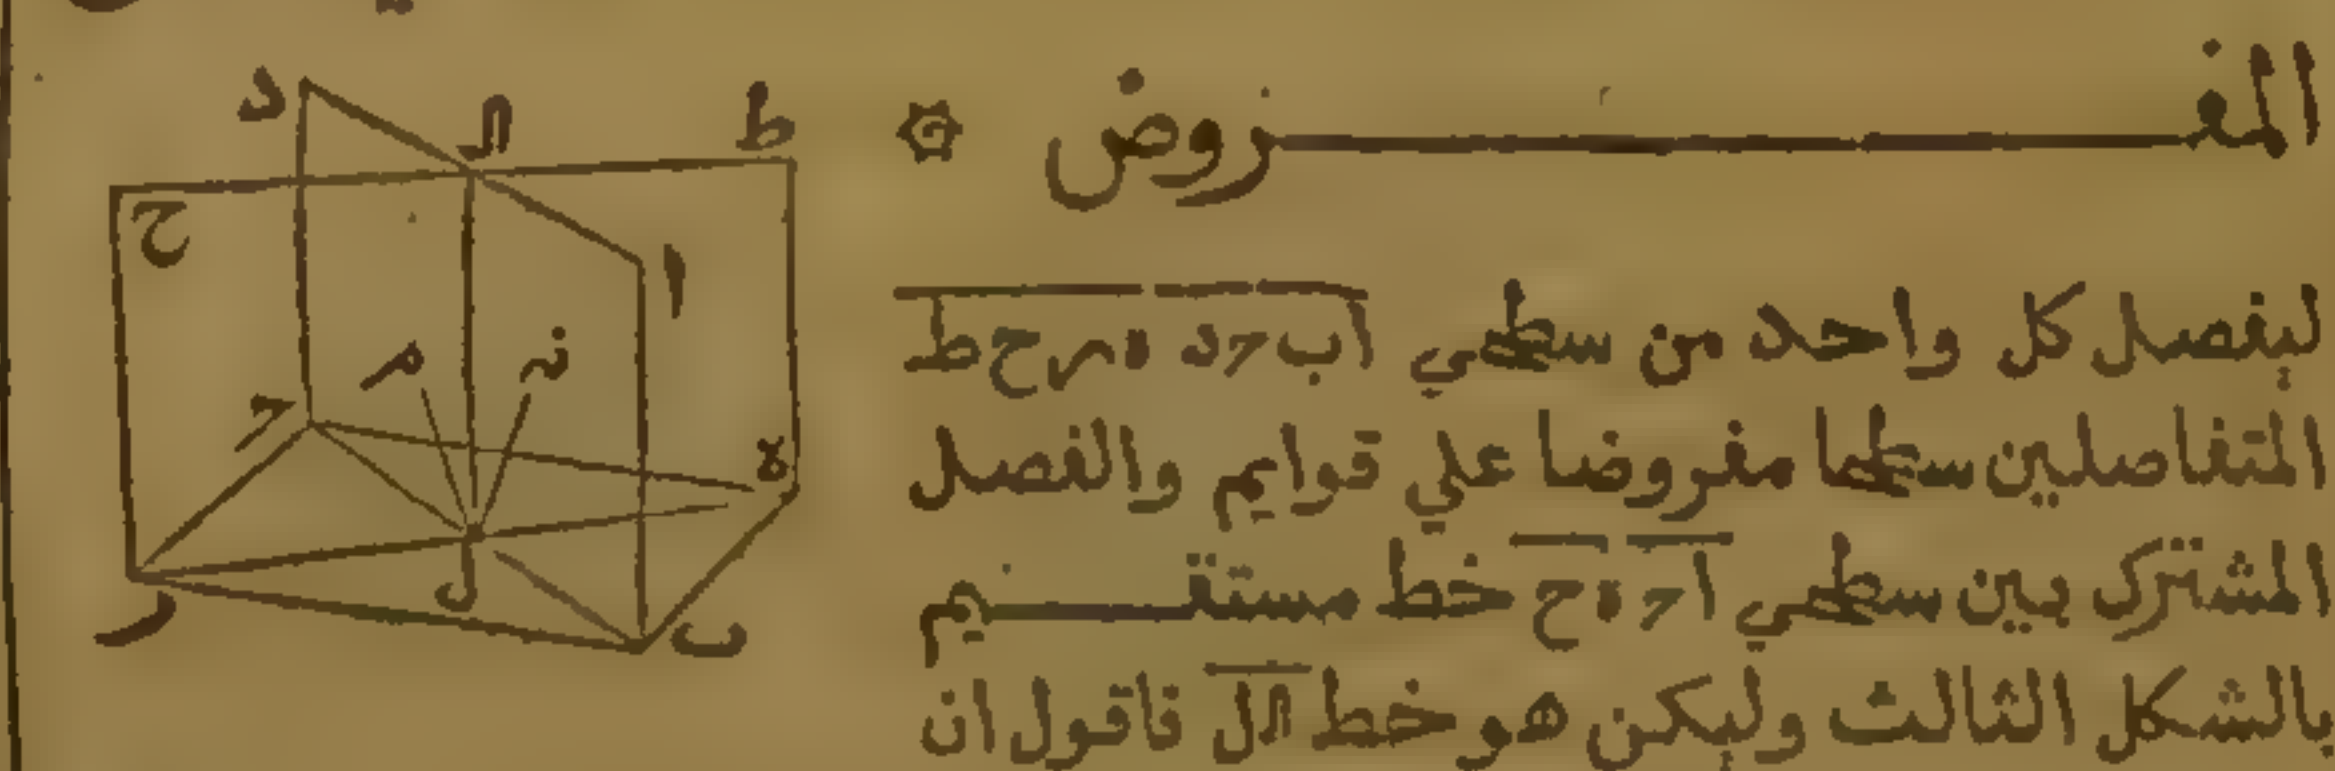 المفروض
ليفصل كل واحد من سطحي اب حد ه‍رحط
المتفاصلين سطحا مفروضا علي قوايم والفصل
المشترك بين سطحي ا ح ه ح خط مستقيم
بالشكل الثالث وليكن هو خط ال فاقول ان
د
ط
ح
ا
م
ن
ح
ه
ل
ر
ب